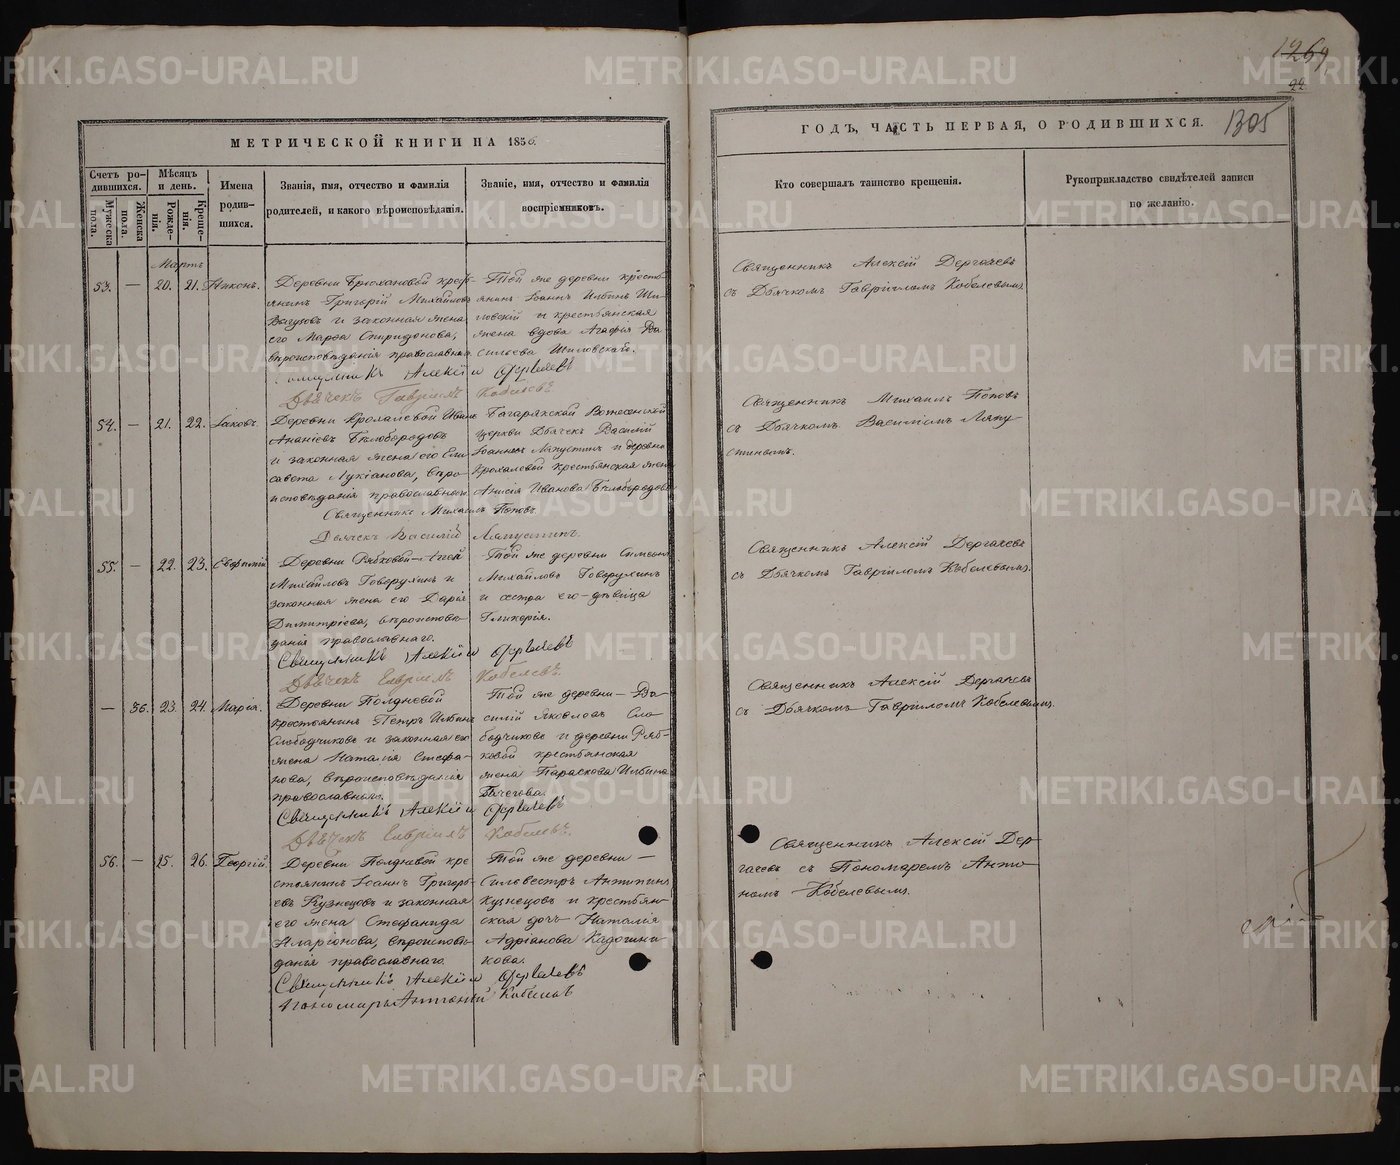 1269
22.
1305
МЕТРИЧЕСКОЙ КНИГИ НА 1856.
Счетъ родившихся.
Мужеска пола.
Женска пола.
Мѣсяцъ и день.
Рожденія.
Крещенія.
Имена родившихся.
Званія, имя, отчество и фамилія
родителей, и какого вѣроисповѣданія.
Званіе, имя, отчество и фамилія
воспріемниковъ.
ГОДЪ, ЧАСТЬ ПЕРВАЯ, О РОДИВШИХСЯ.
Кто совершалъ таинство крещенія.
Рукоприкладство свидѣтелей записи
по желанію.
Мартъ
53. — 20. 21. Никонъ.
янинъ Григорій Михайловъ
и законная жена
его Марѳа Спиридонова,
вѣроисповѣданія православнаго
Той же деревни кресть-
янинъ Іоаннъ Ильинъ Ши-
ловскій и крестьянская
жена вдова Агафія Ва
сильева Шиловскаго.
Алексій Дергачевъ
Дьячекъ Гавріилъ Кобелевъ
Священникъ Алексій Дергачевъ
съ Дьячкомъ Гавріиломъ Кобелевымъ
54. — 21. 22. Іаковъ.
Ананіевъ Бѣлобородовъ
и законная жена его Ели
савета Лукіанова, вѣро
исповѣданія православнаго
Багарякской Вознесенской
церкви Дьячекъ Василій
Іоанновъ Ляпустинъ и деревни
крестьянская жена
Анисія Иванова Бѣлобородова
Священникъ Михаилъ Поповъ.
Дьячекъ Василій Ляпустинъ.
Священникъ Михаилъ Поповъ
съ Дьячкомъ Василіемъ Ляпу
стинымъ.
55. — 22. 23.
Деревни Рябковой
Михайловъ Говорухинъ и
законная жена его Дарія
Димитріева, вѣроисповѣ-
данія православнаго.
Той же деревни Симеонъ
Михайловъ Говорухинъ
и сестра его дѣвица
Гликерія.
Священникъ Алексій Дергачевъ
Дьячекъ Гавріилъ Кобелевъ.
Священникъ Алексій Дергачевъ
съ Дьячкомъ Гавріиломъ Кобелевымъ.
— 36. 23. 24. Марія.
Деревни Полдневой
крестьянинъ Петръ Ильинъ
Слободчиковъ и законная его
жена Наталія Стефа-
нова, вѣроисповѣданія
православнаго.
Той же деревни — Ва-
силій Яковлевъ Сло
бодчиковъ и деревни Ряб-
ковой крестьянская
жена Параскова Ильина
Священникъ Алексій Дергачевъ
Дьячекъ Гавріилъ Кобелевъ.
Священникъ Алексій Дергачевъ
съ Дьячкомъ Гавріиломъ Кобелевымъ.
56. — 25. 26. Георгій.
Деревни Полдневой кре
стьянинъ Іоаннъ Григорь-
евъ Кузнецовъ и законная
его жена Стефанида
Иларіонова, вѣроисповѣ-
данія православнаго.
Той же деревни —
Силвестръ Антипинъ
Кузнецовъ и крестьян-
ская дочь Наталія
Адріанова Кадочни-
кова.
Священникъ Алексій Дергачевъ
Пономарь Антоній Кобелевъ
Священникъ Алексій Дер-
гачевъ съ Пономаремъ Анто
ніемъ Кобелевымъ.
METRIKI.GASO-URAL.RU